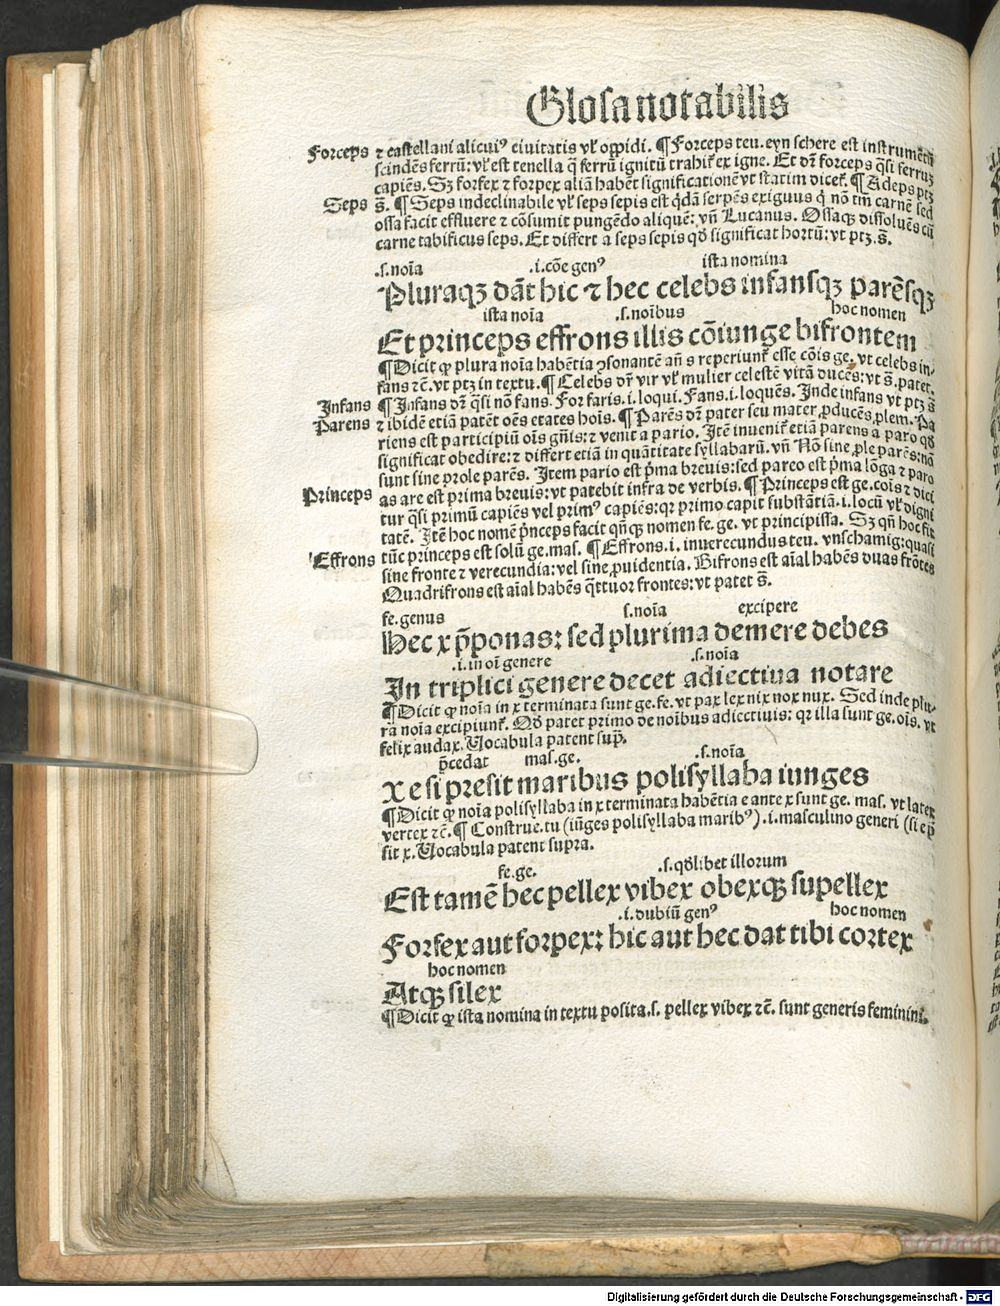 Glosa notabilis
Forceps ⁊ castellani alicuiꝰ ciuitatis vl̓ oppidi. ¶ Forceps teu. eyn schere est instrumētū
scindēs ferrū: vl̓ est tenella q̄ ferrū ignitū trahit̉ ex igne. Et dr̄ forceps q̄si ferruꝫ
capiēs. Sꝫ forfex ⁊ forpex aliā habēt significationē vt statim dicet̉. ¶ Adeps ptꝫ
Seps s̄. ¶ Seps indeclinabile vl̓ seps sepis est q̄dā serpēs exiguus q̇ nō tm̄ carnē sed
ossa facit effluere ⁊ cōsumit pungēdo aliquē: vn̄ Lucanus. Ossaqꝫ dissoluēs cū
carne tabificus seps. Et differt a seps sepis qd̓ significat hortū: vt ptꝫ. s̄.
.s. noīa .i. cōe genꝰ ista nomina
Pluraqꝫ dāt hic ⁊ hec celebs infansqꝫ parēsqꝫ
ista noīa .s. noībus hoc nomen
Et princeps effrons illis cōiunge bifrontem
¶ Dicit ꝙ plura noīa habētia ꝯsonantē an̄ s reperiunt̉ esse cōis ge. vt celebs in-
fans ⁊c̄. vt ptꝫ in textu. ¶ Celebs dr̄ vir vl̓ mulier celestē vitā ducēs: vt s̄. patet.
Infans ¶ Infans dr̄ q̄si nō fans. For faris .i. loqui. Fans .i. loquēs. Inde infans vt ptꝫ s̄
Parens ⁊ ibidē etiā patēt oēs etates hoīs. ¶ Parēs dr̄ pater seu mater ꝓducēs ꝓlem. Pa
riens est participiū oīs gn̄is: ⁊ venit a pario. Itē inuenit̉ etiā parens a paro qd̓
significat obedire: ⁊ differt etiā in quātitate syllabarū. vn̄ Nō sine ꝓle parēs: nā
sunt sine prole parēs. Item pario est p̄ma breuis: sed pareo est p̄ma lōga ⁊ paro
Princeps as are est prima breuis: vt patebit infra de verbis. ¶ Princeps est ge. cōis ⁊ dici
tur q̄si primū capiēs vel primꝰ capiēs: qr primo capit substātiā .i. locū vl̓ digni
tatē. Itē hoc nomē p̄nceps facit qn̄qꝫ nomen fe. ge. vt principissa. Sꝫ qn̄ hoc fit
Effrons tūc princeps est solū ge. mas. ¶ Effrons .i. inuerecundus teu. vnschamig: quasi
sine fronte ⁊ verecundia: vel sine ꝓuidentia. Bifrons est aīal habēs duas frōtes
Quadrifrons est aīal habēs q̄ttuor frontes: vt patet s̄.
fe. genus .s. noīa excipere
Hec x p̄ponas: sed plurima demere debes
.i. in oī genere .s. noīa
In triplici genere decet adiectiua notare
¶ Dicit ꝙ noīa in x terminata sunt ge. fe. vt pax lex nix nox nux. Sed inde plu-
ra noīa excipiunt̉. Qd̓ patet primo de noībus adiectiuis: qr illa sunt ge. oīs. vt
felix audax. Vocabula patent sup̄.
p̄cedat mas. ge. .s. noīa
X e si presit maribus polisyllaba iunges
¶ Dicit ꝙ noīa polisyllaba in x terminata habētia e ante x sunt ge. mas. vt latex
vertex ⁊c̄. ¶ Construe. tu (iūges polisyllaba maribꝰ) .i. masculino generi (si e p̄
sit x. Vocabula patent supra.
fe. ge. .s. qd̓libet illorum
Est tamē hec pellex vibex obexqꝫ supellex
.i. dubiū genꝰ hoc nomen
Forfex aut forpex: hic aut hec dat tibi cortex
hoc nomen
Atqꝫ silex
¶ Dicit ꝙ ista nomina in textu posita .s. pellex vibex ⁊c̄. sunt generis feminini.
Digitalisierung gefördert durch die Deutsche Forschungsgemeinschaft - DFG